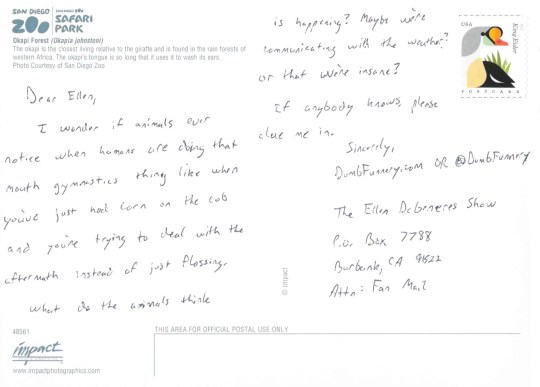 SAN DIEGO ZOO
SAN DIEGO ZOO SAFARI PARK
Okapi Forest (Okapia johnstoni)
The okapi is the closest living relative to the giraffe and is found in the rain forests of
western Africa. The okapi's tongue is so long that it uses it to wash its ears.
Photo Courtesy of San Diego Zoo
Dear Ellen,
I wonder if animals ever
notice when humans are doing that
mouth gymnastics thing like when
you've just had corn on the cob
and you're trying to deal with the
aftermath instead of just flossing.
What do the animals think
is happening? Maybe we're
communicating with the weather?
or that we're insane?
If anybody knows, please
clue me in.
Sincerely,
DumbFunnery.com OR @DumbFunnery
The Ellen DeGeneres Show
P.O. Box 7788
Burbank, CA 91522
Attn: Fan Mail
USA
King Eider
POSTCARD
© impact
48561
impact
www.impactphotographics.com
THIS AREA FOR OFFICIAL POSTAL USE ONLY